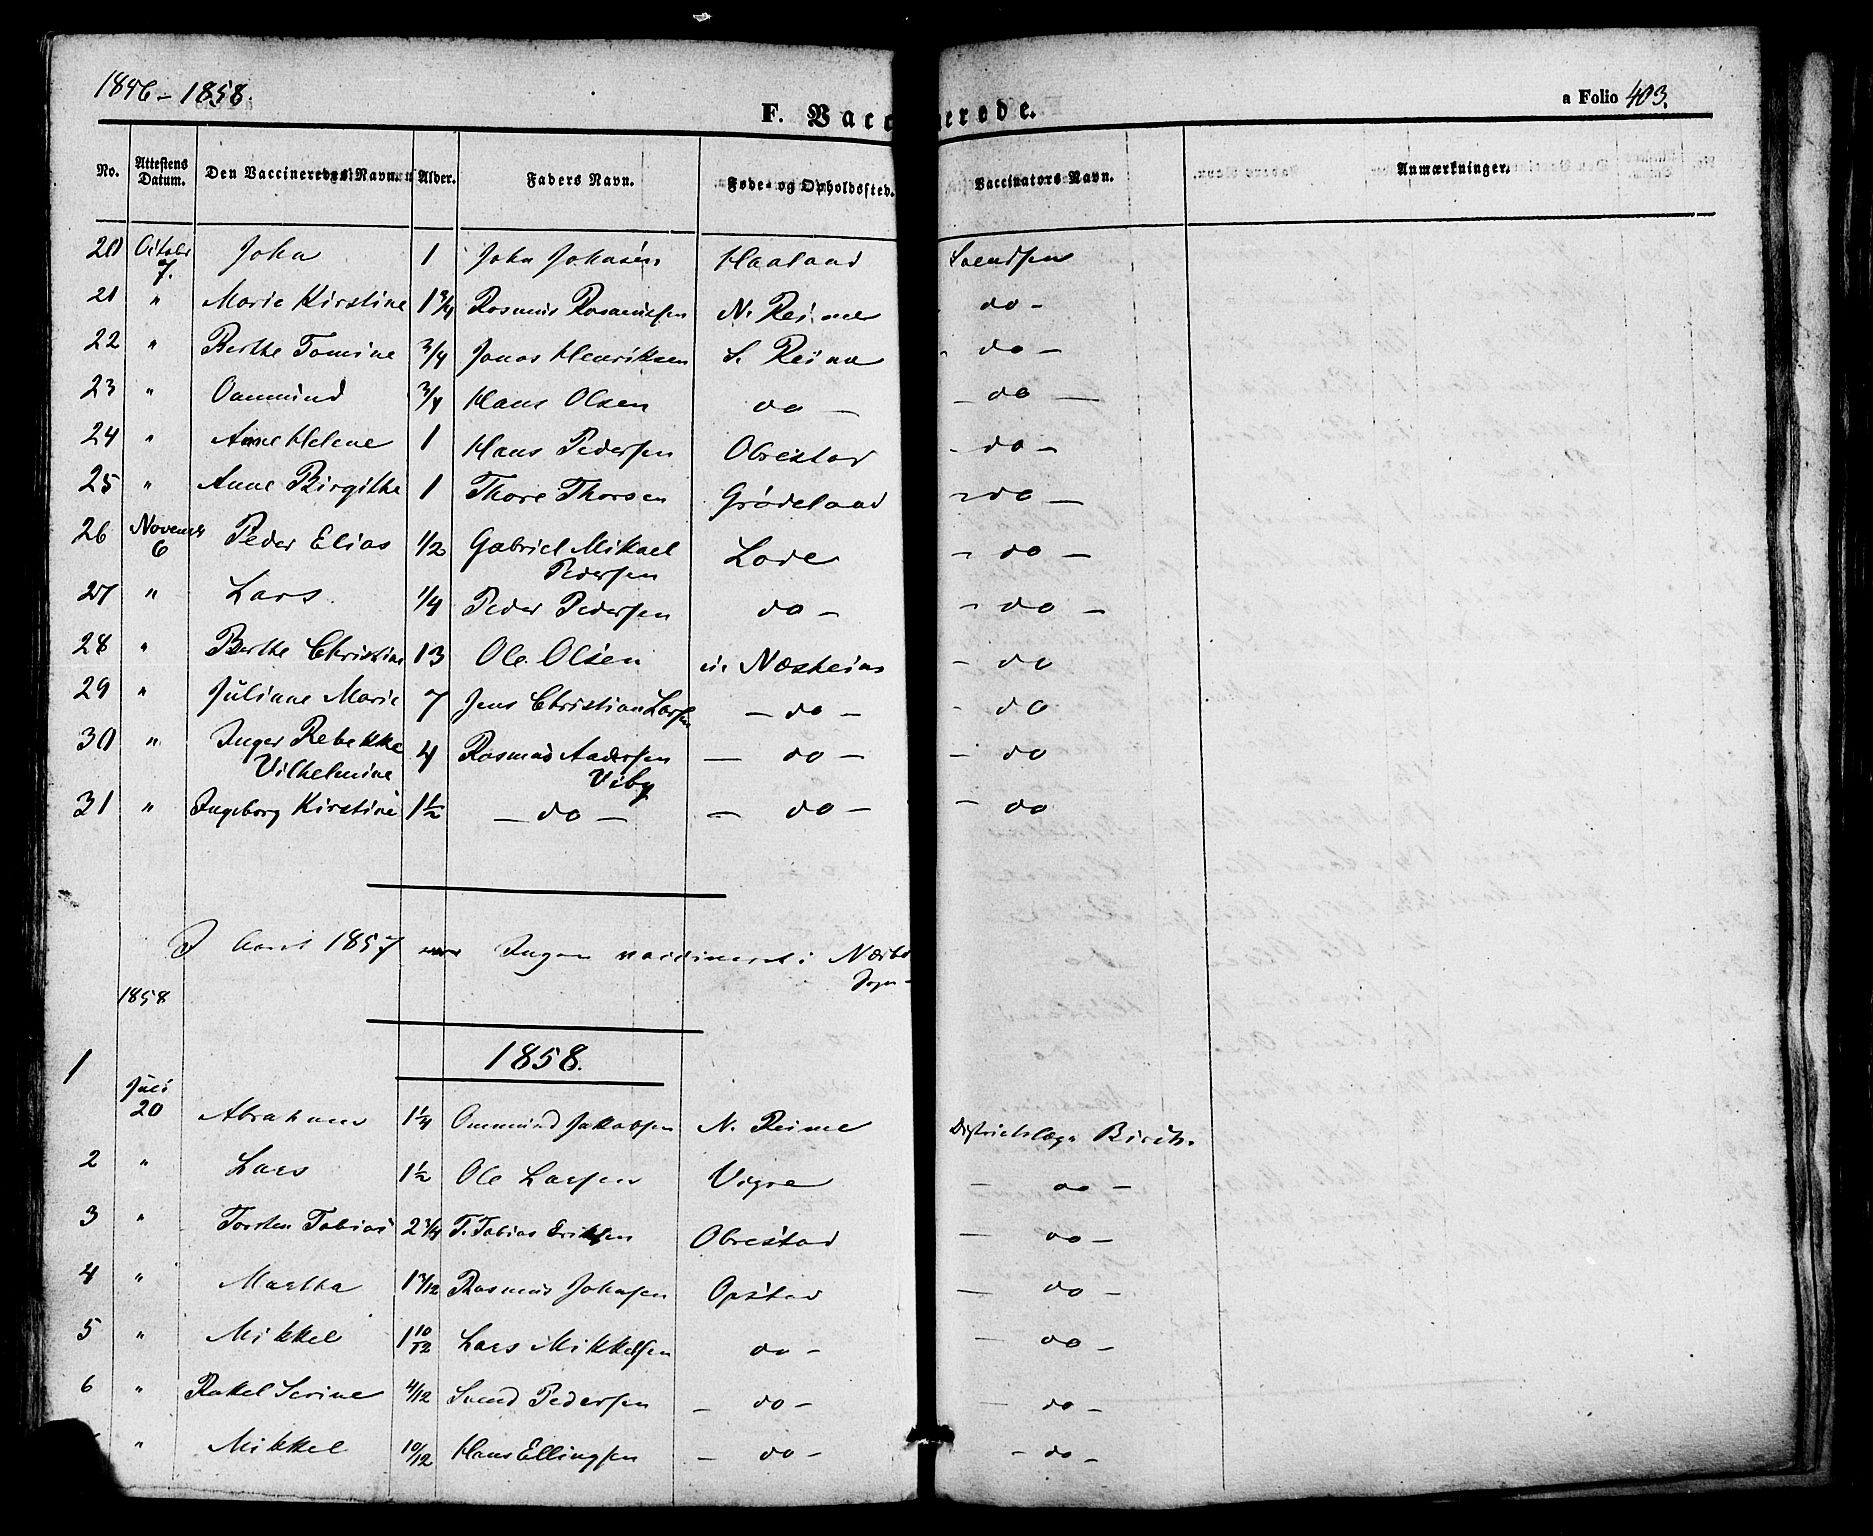 1856 - 1858.
F. Vacc nerede.
a Folio 403.
No. Attestens Datum. Den Vaccineredes Navn. Alder. Faders Navn. Føde- og Opholdssted. Vaccinators Navn. Anmærkninger.
20 Octobr 7. John 1 John Johnsen Haaland Svendsen
21 " Marie Kirstine 1 3/4 Rasmus Rasmussen N. Reime do -
22 " Berthe Tomine 3/4 Jonas Henriksen S. Reime do -
23 " Ommund 3/4 Hans Olsen do - - do -
24 " Anne Helene 1 Hans Pedersen Obrestad - do -
25 " Anne Birgithe 1 Thore Thorsen Grødeland - do -
26 Novembr 6 Peder Elias 1/2 Gabriel Mikael Pedersen Lode - do -
27 " Lars. 1/4 Peder Pedersen do - - do -
28 " Berthe Christine 13 Ole Olsen Næsheim - do
29 " Juliane Marie 7 Jens Christian Larsen - do - - do
30 " Inger Rebekke Vilhelmine 4 Rasmus Andersen Viby - do - - do
31 " Ingeborg Kirstine 1 1/2 - do - - do - - do
I Aaret 1857 Ingen vaccineret i Nærbø Sogn -
1858
1858.
1 Juli 20 Abraham 1 1/4 Ommund Jakobsen N. Reime Districtslæge Birch.
2 " Lars 1 1/2 Ole Larsen Vigre - do -
3 " Torsten Tobias 2 3/4 T. Tobias Eriksen Obrestad - do -
4 " Martha 1 3/12 Rasmus Johnsen Opstad - do -
5 " Mikkel 1 10/12 Lars Mikkelsen do - - do -
6 " Rakel Serine 4/12 Svend Pedersen - do - - do -
" Mikkel 10/12 Hans Ellingsen - do - - do -